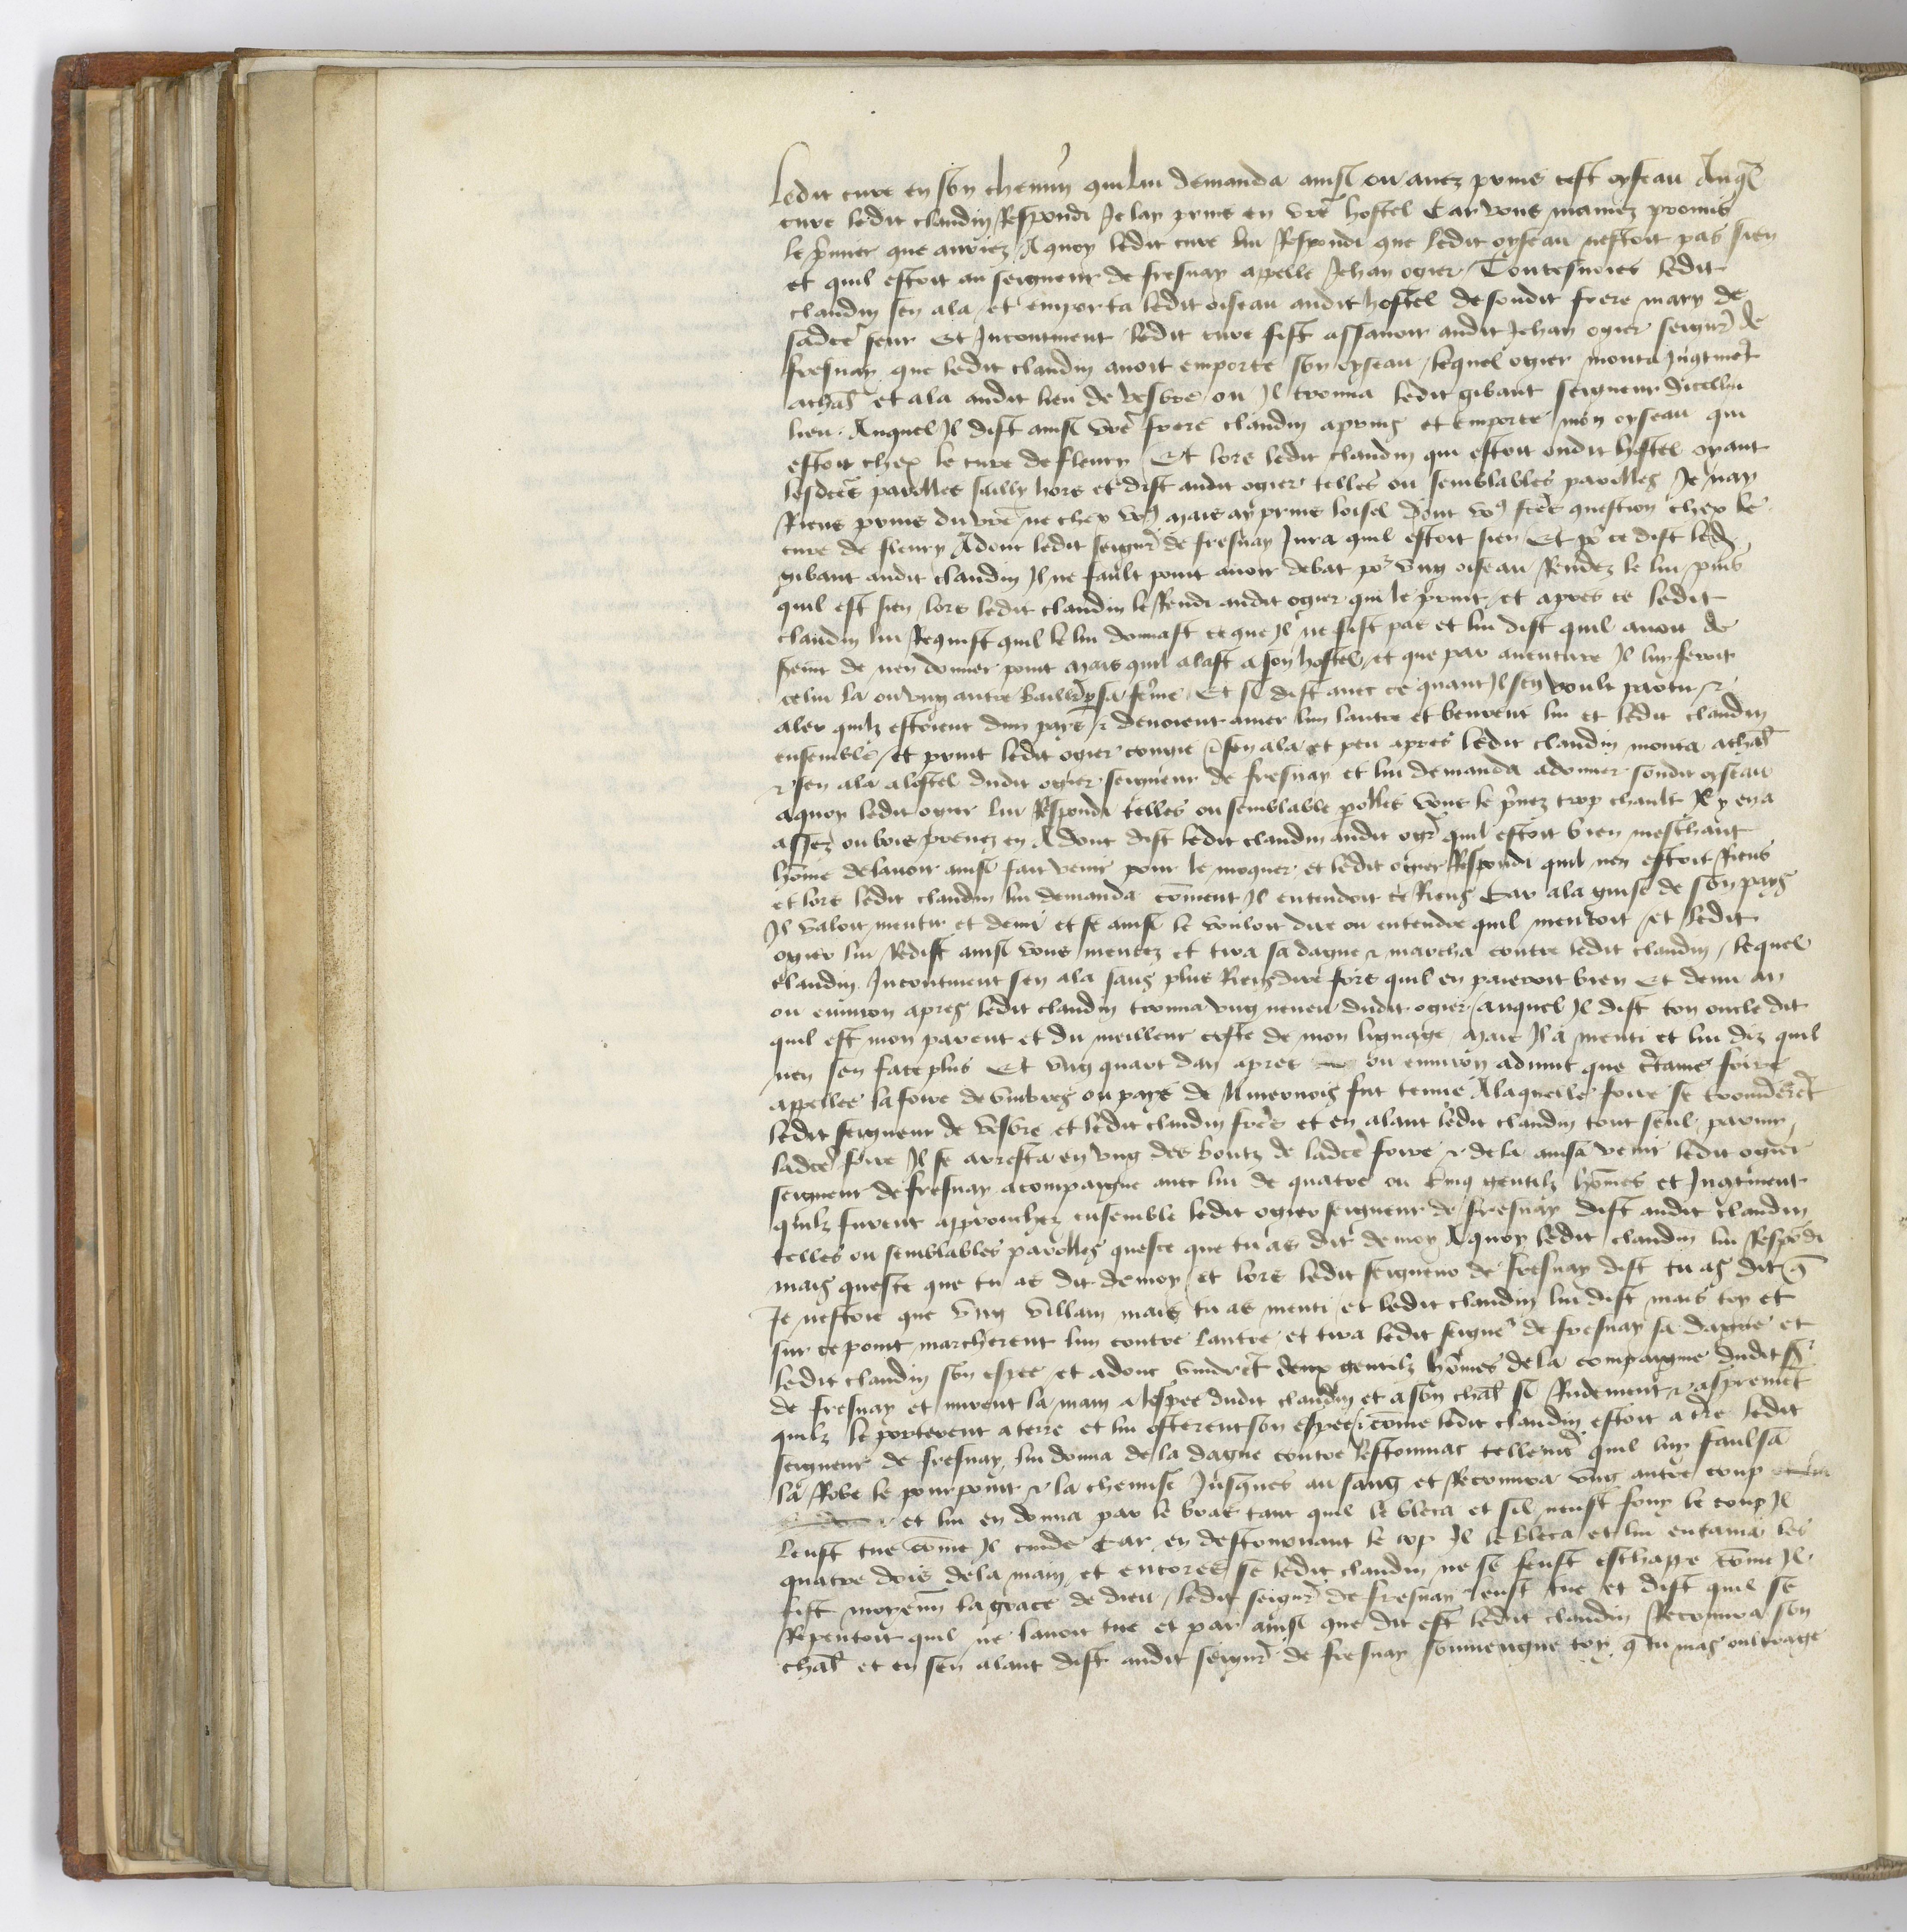 Ledit cure en son chemin qui lui demanda ainsi ou avez prins cest oyseau Auql
cure ledit claudin Respondi Je lay prins en vre hostel Car vous mamez promis
le pmier que auriez / A quoy ledit cure lui Respondi que ledit oyseau nestoit pas sien
et quil estoit au seigneur de fresnay appelle Jehan ogier / Toutesvoies ledit
claudin sen ala / et emporta ledit oiseau audit hostel de sondit frere mary de
sadce seur Et Incontinent ledit cure fist assavoir audit Jehan ogier seigneur de
fresnay que ledit claudin avoit emporte son oyseau / lequel ogier monta Inctinet
achal et ala audit lieu de vesvre ou Il trouva ledit gibaut seigneur dicellui
lieu. Auquel Il dist ainsi vre frere claudin a prins et emporte mon oyseau qui
estoit chez le cure de fleury / Et lors ledit claudin qui estoit oudit hostel oyant
lesdces parolles sailly hors et dist audit ogier telles ou semblables parolles Je nay
Riens prins du vre ne chez vo9 mais ay prins loisel dont vo9 fctes question chez le
cure de fleury Adonc ledit seigneur de fresnay Jura quil estoit sien Et po ce dist led
gibaut audit claudin Il ne fault point avoir debat por ung oiseau Rendez le lui puis
quil est sien / lors ledit claudin le Rendi audit ogier qui le print / et apres ce ledit
claudin lui Requist quil le lui donnast ce que Il ne fist pas et lui dist quil avoit de
 de nen donner point mais quil alast a son hostel / et que par aventure Il luy feroit
celui la ou ung autre baillr p sa feme / Et si dist avec ce quant Il sen voult partir &
aler quilz estoient dun pays & devoient amer lun lautre et beurent lui et ledit claudin
ensemble / et print ledit ogier congie & sen ala et peu apres ledit claudin monta achal
& sen ala alostel dudit ogier seigneur de fresnay et lui demanda adonner sondit oyseau
aquoy ledit ogier lui Respondi telles ou semblable polles vous le pnez trop chault Il y en a
assez ou bois prenez en Adonc dist ledit claudin audit ogr quil estoit bien meschant
home de lavoir ainsi fait venir pour le moquer et ledit ogier Respondi quil nen estoit Riens
et lors ledit claudin lui demanda coment Il entendoit ce Riens Car ala guise de son pays
Il valoit mentir et demi et se ainsi le vouloit dire ou entendre quil mentoit / et ledit
ogier lui Redist ainsi vous mentez et tira sa dague & marcha contre ledit claudin / lequel
claudin Incontinent sen ala sans plus Riens dire fors quil en pareroit bien Et demi an
ou environ apres ledit claudin trouva ung neveu dudit ogier / auquel Il dist ton oncle dit
quil est mon parent et du meilleur coste de mon lignage mais Il a menti et lui diz quil
nen sen face plus Et ung quart dan apres ou environ advint que ctaine foire
appellee la foire de ou pays de Nivernois fut tenue Alaquelle foire se trouverert
ledit seigneur de vesvre et ledit claudin fres et en alant ledit claudin tout seul parmy
ladce foire Il se arresta en ung des boutz de ladce foire & de la avisa venir ledit ogier
seigneur de fresnay acompaigne avec lui de quatre ou cinq gentilz homes et Inctinent
quilz furent approuchez ensemble ledit ogier seigneur de fresnay dist audit claudin
telles ou semblables parolles quesce que tu as dit de moy Aquoy ledit claudin lui Respodi
mais quesce que tu as dit de moy / et lors ledit seigneur de fresnay dist tu as dit q
Je nestoie que ung villain mais tu as menti et ledit claudin lui dist mais toy et
sur ce point marcherent lun contre lautre et tira ledit seigner de fresnay sa dague et
ledit claudin son espee / et adonc vindret deux gentilz homes de la compaignie dudit sr
de fresnay et mirent la main a lespee dudit claudin et a son chal si Rudement & aspremet
quilz le porterent a terre et lui osterent son espee / & come ledit claudin estoit a tre ledit
seigneur de fresnay lui donna de la dague contre lestomac tellemt quil luy faulsa
la Robe le pourpoint & la chemise Jusques au sang et Recouvra ung autre coup
et lui en donna par le bras tant quil le bleca et sil neust fouy le coup Il
leust tue come Il cuide Car en destournant le cop Il le bleca et lui entama les
quatre dois de la main et encores se ledit claudin ne se feust eschappe come Il
fist moyenn la grace de dieu / ledit seigneur de fresnay leust tue et dist quil se
Repentoit quil ne lavoit tue et par ainsi que dit est ledit claudin Recouvra son
chal et en sen alant dist audit seigneur de fresnay souviengne toy q tu mas oultrage